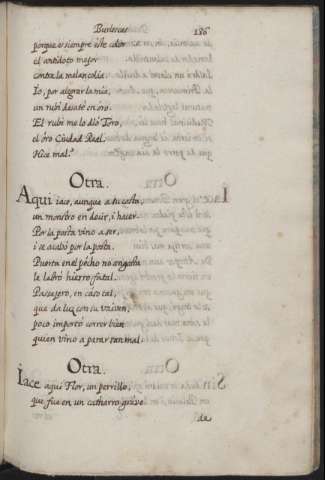 Burlescas 186
porque es siempre este color
el antidoto mejor
contra la melancolia
Io, por alegrar la mia,
un rubi desaté en oro.
El rubi me lo dio Toro,
el óro Ciudad Real.
Hice mal.ª
Otra.
Aqui iace, aunque a su costa,
un monstro en decir, i hacer.
Por la posta vino a ser,
i se acabó por la posta.
Puerta en el pecho no angosta
le labró hierro fatal.
Pasajero, en caso tal,
que da luz con su vaiven,
poco importó correr bien
quien vino a parar tan mal.
Otra.
Iace aqui Flor, un perrillo,
que fue en un catharro grave
de